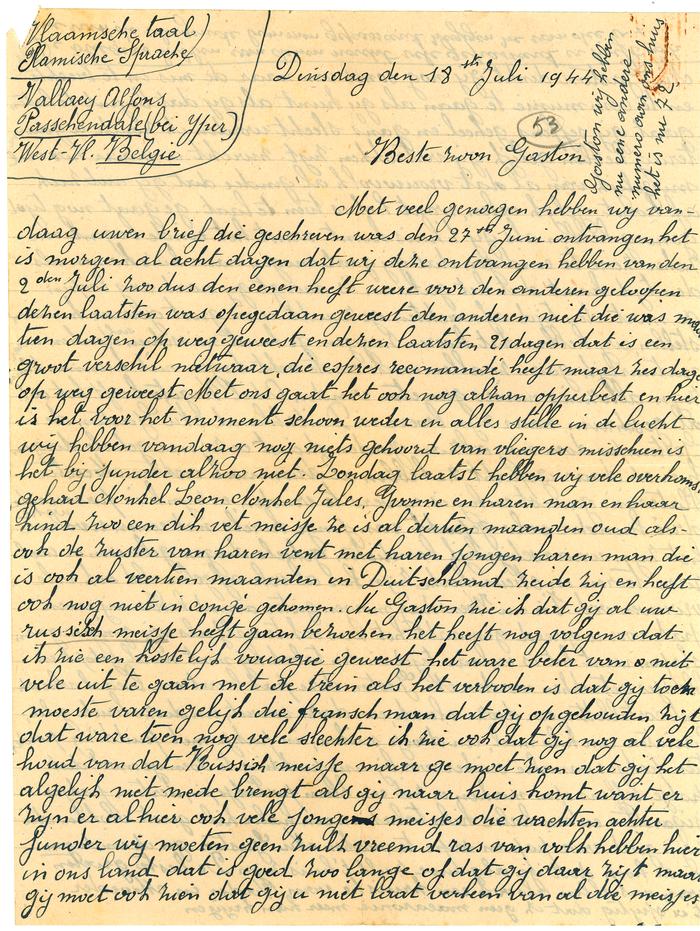 Vlaamsche taal)
Vlamische Sprache
Vallaey Alfons
Passchendale (bei Yper)
West-Vl. Belgie
Dinsdag den 18 sth Juli 1944
53
Gaston wij hebben
nu eene andere
numero van ons huis
het is nu 78
Beste zoon Gaston
Met veel genoegen hebben wij van-
daag uwen brief die geschreven was den 27sth Juni ontvangen het
is morgen al acht dagen dat wij deze ontvangen hebben van den
2den Juli zoo dus den eenen heeft weere voor den anderen geloopen
dezen laatsten was opegedaan geweest den anderen niet die was maar
tien dagen op weg geweest en dezen laatsten 21 dagen dat is een
groot verschil nietwaar, die espres recomandé heeft maar zes dage
op weg geweest Met ons gaat het ook nog alzan opperbest en hier
is het voor het moment schoon weder en alles stille in de lucht
wij hebben vandaag nog niets gehoord van vliegers misschien is
het bij Junder alzoo niet. Zondag laatst hebben wij vele overkoms
gehad Nonkel Leon Nonkel Jules, Yvonne en haren man en haar
kind zoo een dik vet meisje ze is al dertien maanden oud als-
ook de zuster van haren vent met haren jongen haren man die
is ook al veertien maanden in Duitschland zeide zij en heeft
ook nog niet in congé gekomen. Nu Gaston zie ik dat gij al uw
russisch meisje heeft gaan bezoeken het heeft nog volgens dat
ik zie een kostelijk vouagie geweest het ware beter van o niet
vele uit te gaan met de trein als het verboden is dat gij toen
moeste varen gelijk die franschman dat gij opgehouden zijt
dat ware toen nog vele slechter ik zie ook dat gij nog al vele
houd van dat Russich meisje maar ge moet zien dat gij het
algelijk niet mede brengt als gij naar huis komt want er
zijn er alhier ook vele jonge meisjes die wachten achter
Junder wij moeten geen zulk vreemd ras van volk hebben hier
in ons land dat is goed zoo lange of dat gij daar zijt maar
gij moet ook zien dat gij u niet laat verleen van al die meisjes